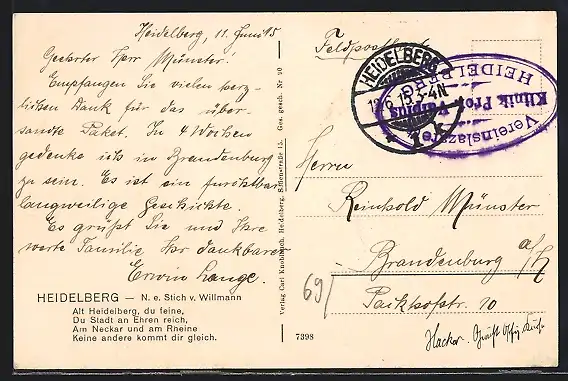 Heidelberg, 11. Juni 15
Geehrter Herr Münster!
Empfangen Sie vielen herz-
lichen Dank für das über-
sandte Paket. In 4 Wochen
gedenke ich in Brandenburg
zu sein. Es ist ein furchtbar
langweilige Geschichte.
Es grüßt Sie und Ihre
werte Familie Ihr dankbarer
Erwin Lange.
HEIDELBERG — N. e. Stich v. Willmann
Alt Heidelberg, du feine,
Du Stadt an Ehren reich,
Am Neckar und am Rheine
Keine andere kommt dir gleich.
Verlag Carl Kuchlbach, Heidelberg, Sofienstraße 15. Ges. gesch. Nr. 20
Feldpostkarte
HEIDELBERG
12.6.15.3-4N
* 1 k
Vereinslazarett
Klinik Prof. Vulpius
HEIDELBERG
Herrn
Reinhold Münster
Brandenburg a/H
Packhofstr. 10
69/
7398